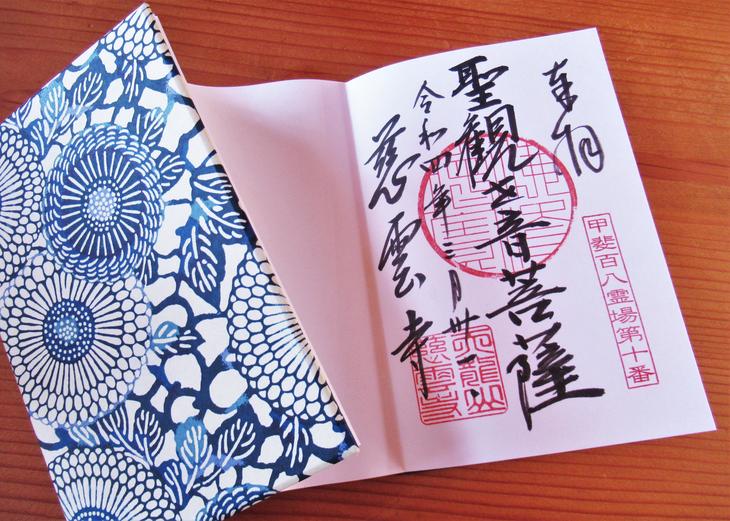 奉拝
甲斐百八霊場第十番
聖観世音菩薩
令和四年三月卅一日
慈雲寺
天龍山
慈雲寺